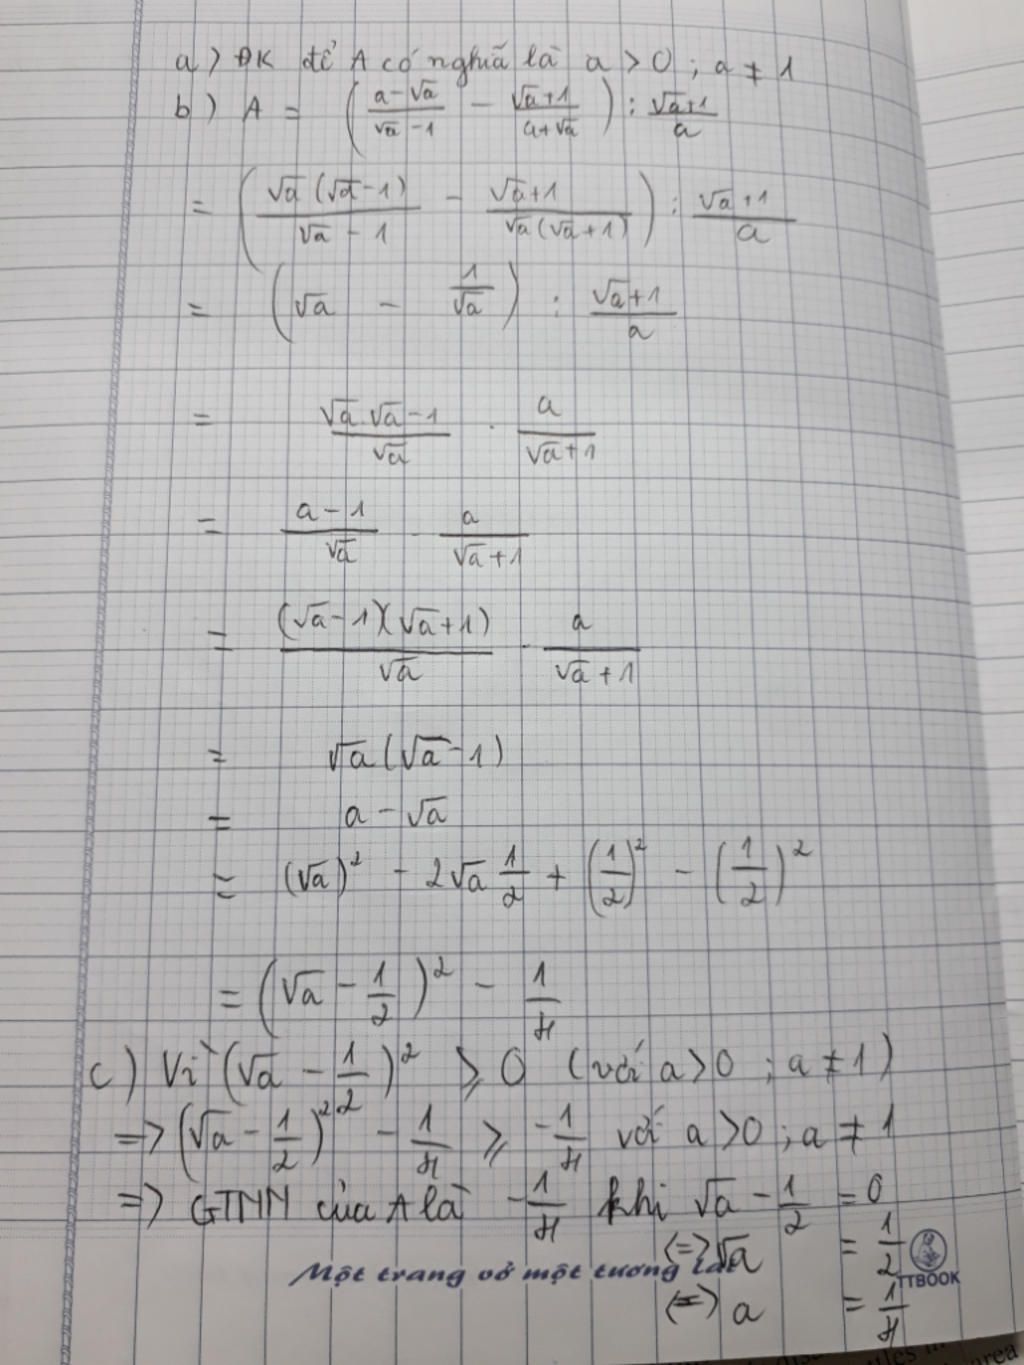 a) ĐK để A có nghĩa là a > 0 ; a ≠ 1
b) A = ((a-√a)/(√a-1) - (√a+1)/(a+√a)) : (√a+1)/a
= (√a(√a-1)/(√a-1) - (√a+1)/(√a(√a+1))) : (√a+1)/a
= (√a - 1/√a) : (√a+1)/a
= (√a.√a-1)/√a . a/(√a+1)
= (a-1)/√a . a/(√a+1)
= (√a-1)(√a+1)/√a . a/(√a+1)
= √a(√a-1)
= a - √a
= (√a)² - 2√a 1/2 + (1/2)² - (1/2)²
= (√a - 1/2)² - 1/4
c) Vì (√a - 1/2)² ≥ 0 (với a>0 ; a ≠ 1)
=> (√a - 1/2)² - 1/4 ≥ -1/4 với a>0 ; a ≠ 1
=> GTNN của A là -1/4 khi √a - 1/2 = 0
<=> √a = 1/2
Một trang vở một tương lai
TTBOOK
<=> a = 1/4